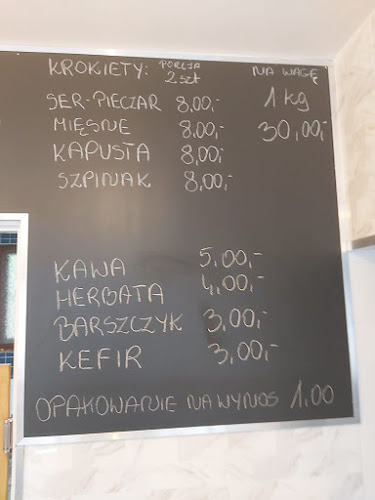 KROKIETY: PORCJA 2szt NA WAGĘ
SER-PIECZAR 8,00,- 1 kg
MIĘSNE 8,00,- 30,00,-
KAPUSTA 8,00,-
SZPINAK 8,00,-
KAWA 5,00,-
HERBATA 4,00,-
BARSZCZYK 3,00,-
KEFIR 3,00,-
OPAKOWANIE NA WYNOS 1.00